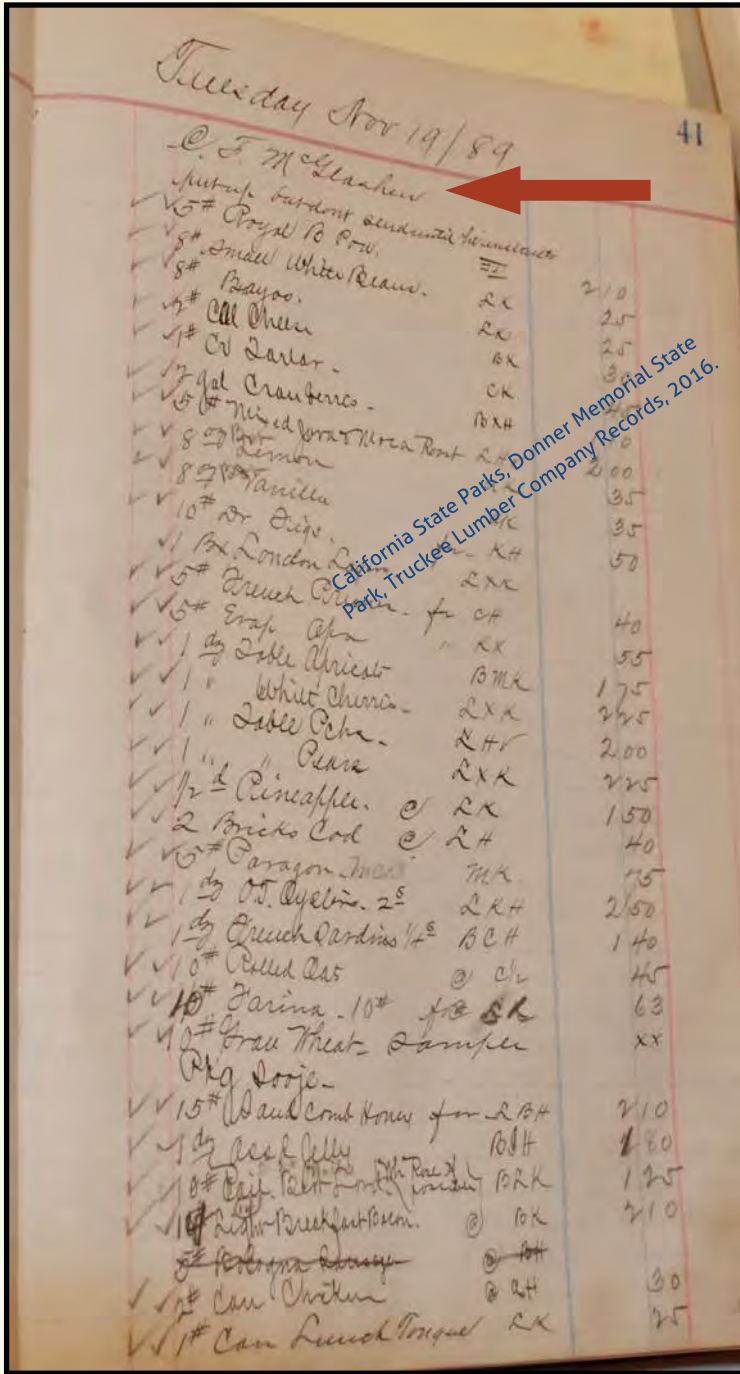 41
Tuesday Nov 19/89
C. F. McGlashen
put up but dont send until he
5# Royal B Pow. 210
8# Small White Beans. LK 25
8# Bayos. LK 25
2# Cal Cheese BK 30
1# Cr Tartar - CK
2 gal Cranberries - BXH
5# Mixed Java & Moca Roast LH 200
8 oz Bot Lemon 35
8 oz Vanilla 35
10# Dr Figs. KH 50
1 Bx London LXK
5# French for CH 40
5# Evap Apr " KX 55
1 dz Table Apricots BMK 175
1 " White Cherris - LXK 225
1 " Table Pchs - LHV 200
1 " " Pears LXK 225
1/2 d Pineapple. @ LK 150
2 Bricks Cod @ LH 40
5# Paragon MK 75
1 dz O.T. Oysters. 2s LKH 250
1 dz French Sardins 1/4s BCH 140
10# Rolled Oats @ 45
10# Farina - 10# for 63
Wheat - Samper xx
Pkg
15# Comb Honey for LBH 210
1 dz Ass d Jelly BJH 180
10# BLK 125
10# Light Breakfast Bacon. @ BK 210
5# Bologna @ BH
2# Can Chiken @ LH 30
1# Can Lunch Tongue LK 25
California State Parks, Donner Memorial State
Park, Truckee Lumber Company Records, 2016.